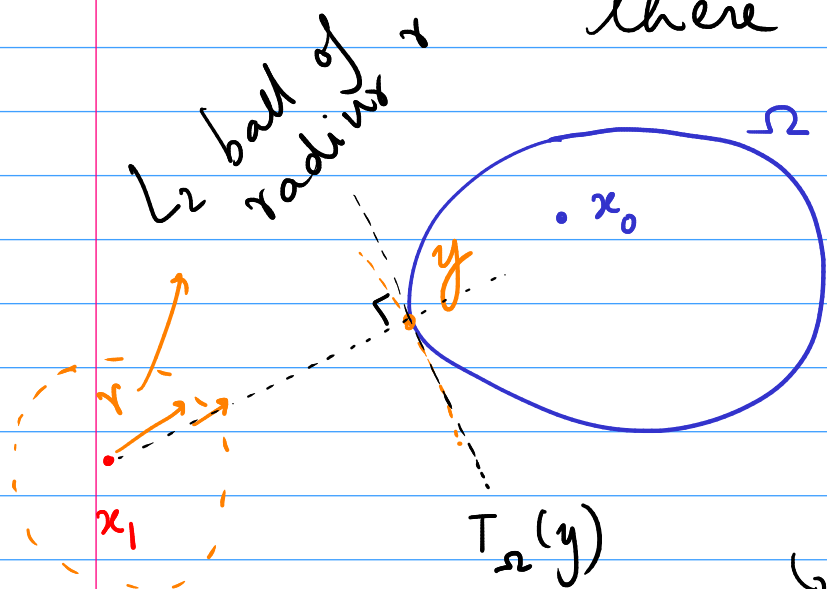 there
L₂ ball of r
radius
Ω
x₀
y
r
x₁
T_Ω(y)